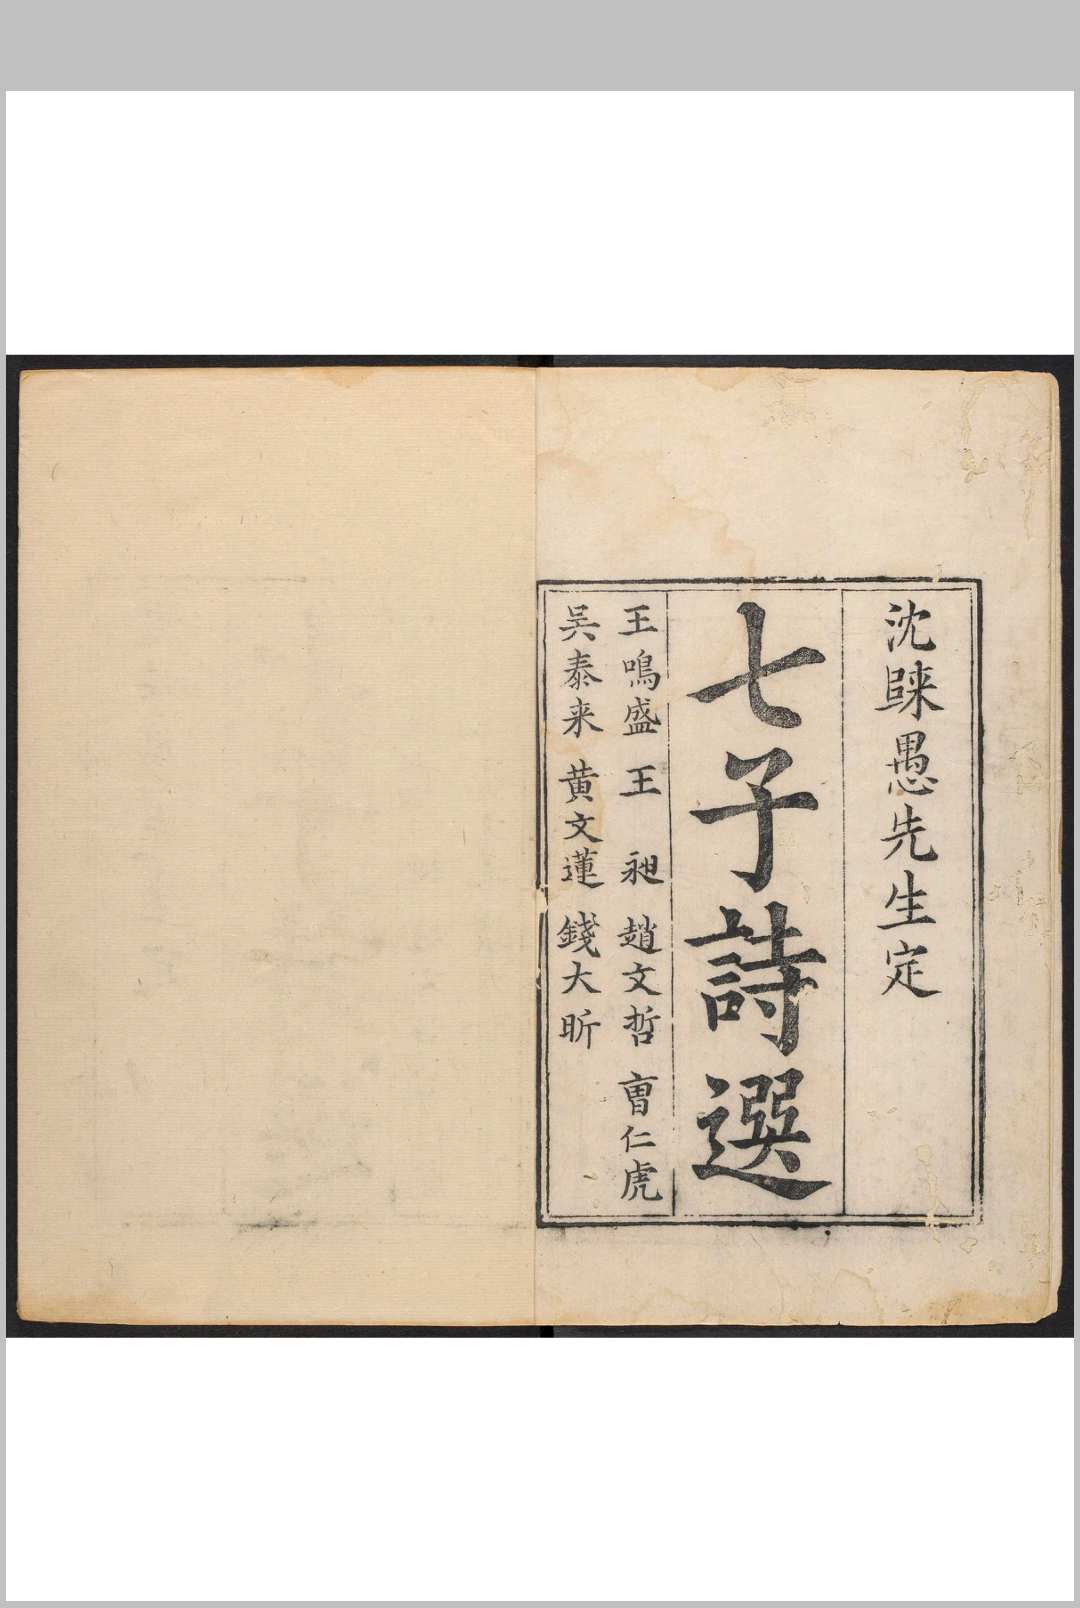 沈歸愚先生定
七子詩選
王鳴盛 王 昶 趙文哲 曹仁虎
吳泰来 黃文蓮 錢大昕